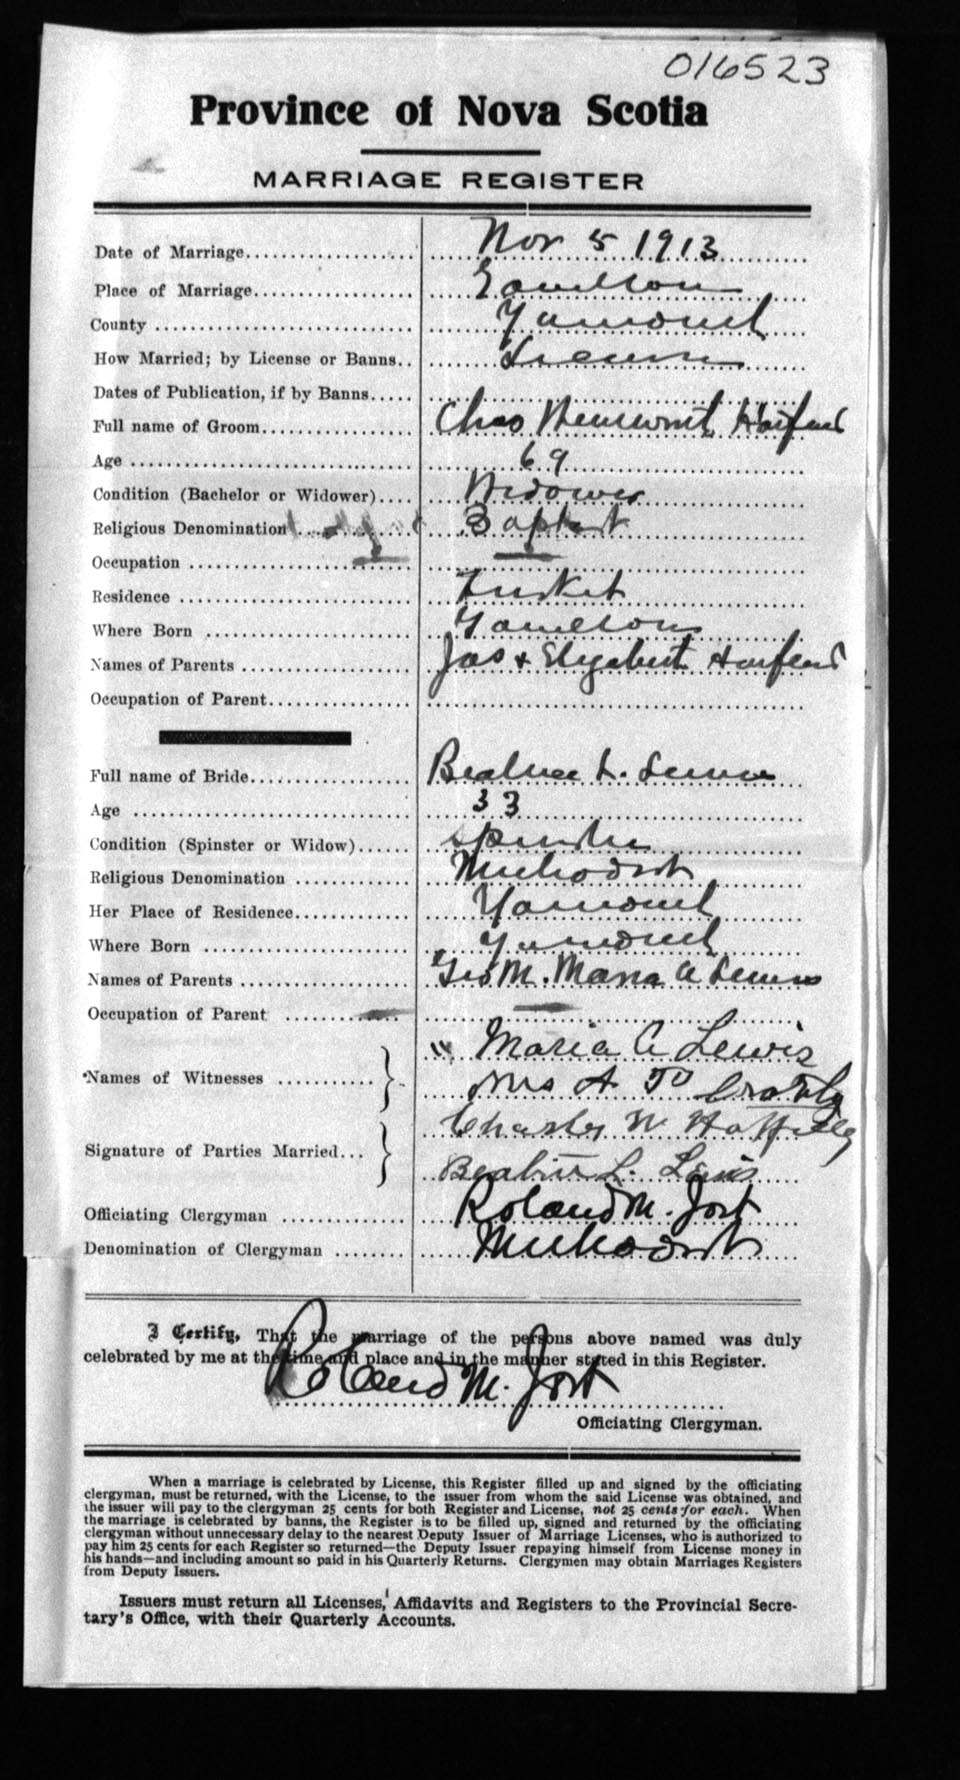 016523
Province of Nova Scotia
MARRIAGE REGISTER
Date of Marriage.................... Nov 5 1913
Place of Marriage...................
County ............................. Yarmouth
How Married; by License or Banns.. License
Dates of Publication, if by Banns.....
Full name of Groom.................. Chas
Age ............................... 69
Condition (Bachelor or Widower).... Widower
Religious Denomination ............ Baptist
Occupation ........................
Residence ......................... Tusket
Where Born ........................
Names of Parents .................. Jas & Elizabeth
Occupation of Parent................
Full name of Bride.................. Beatrice L. Lewis
Age ............................... 33
Condition (Spinster or Widow)...... Spinster
Religious Denomination ............ Methodist
Her Place of Residence............. Yarmouth
Where Born ........................ Yarmouth
Names of Parents .................. Geo M. Maria A Lewis
Occupation of Parent ..............
Names of Witnesses ........... } " Maria A Lewis
Mrs A
Signature of Parties Married... } Charles W Hatfield
Beatrice L. Lewis
Officiating Clergyman ............. Roland M. Jost
Denomination of Clergyman ........ Methodist
I Certify, That the marriage of the persons above named was duly
celebrated by me at the time and place and in the manner stated in this Register.
Roland M. Jost
Officiating Clergyman.
When a marriage is celebrated by License, this Register filled up and signed by the officiating
clergyman, must be returned, with the License, to the issuer from whom the said License was obtained, and
the issuer will pay to the clergyman 25 cents for both Register and License, not 25 cents for each. When
the marriage is celebrated by banns, the Register is to be filled up, signed and returned by the officiating
clergyman without unnecessary delay to the nearest Deputy Issuer of Marriage Licenses, who is authorized to
pay him 25 cents for each Register so returned—the Deputy Issuer repaying himself from License money in
his hands—and including amount so paid in his Quarterly Returns. Clergymen may obtain Marriages Registers
from Deputy Issuers.
Issuers must return all Licenses, Affidavits and Registers to the Provincial Secre-
tary's Office, with their Quarterly Accounts.